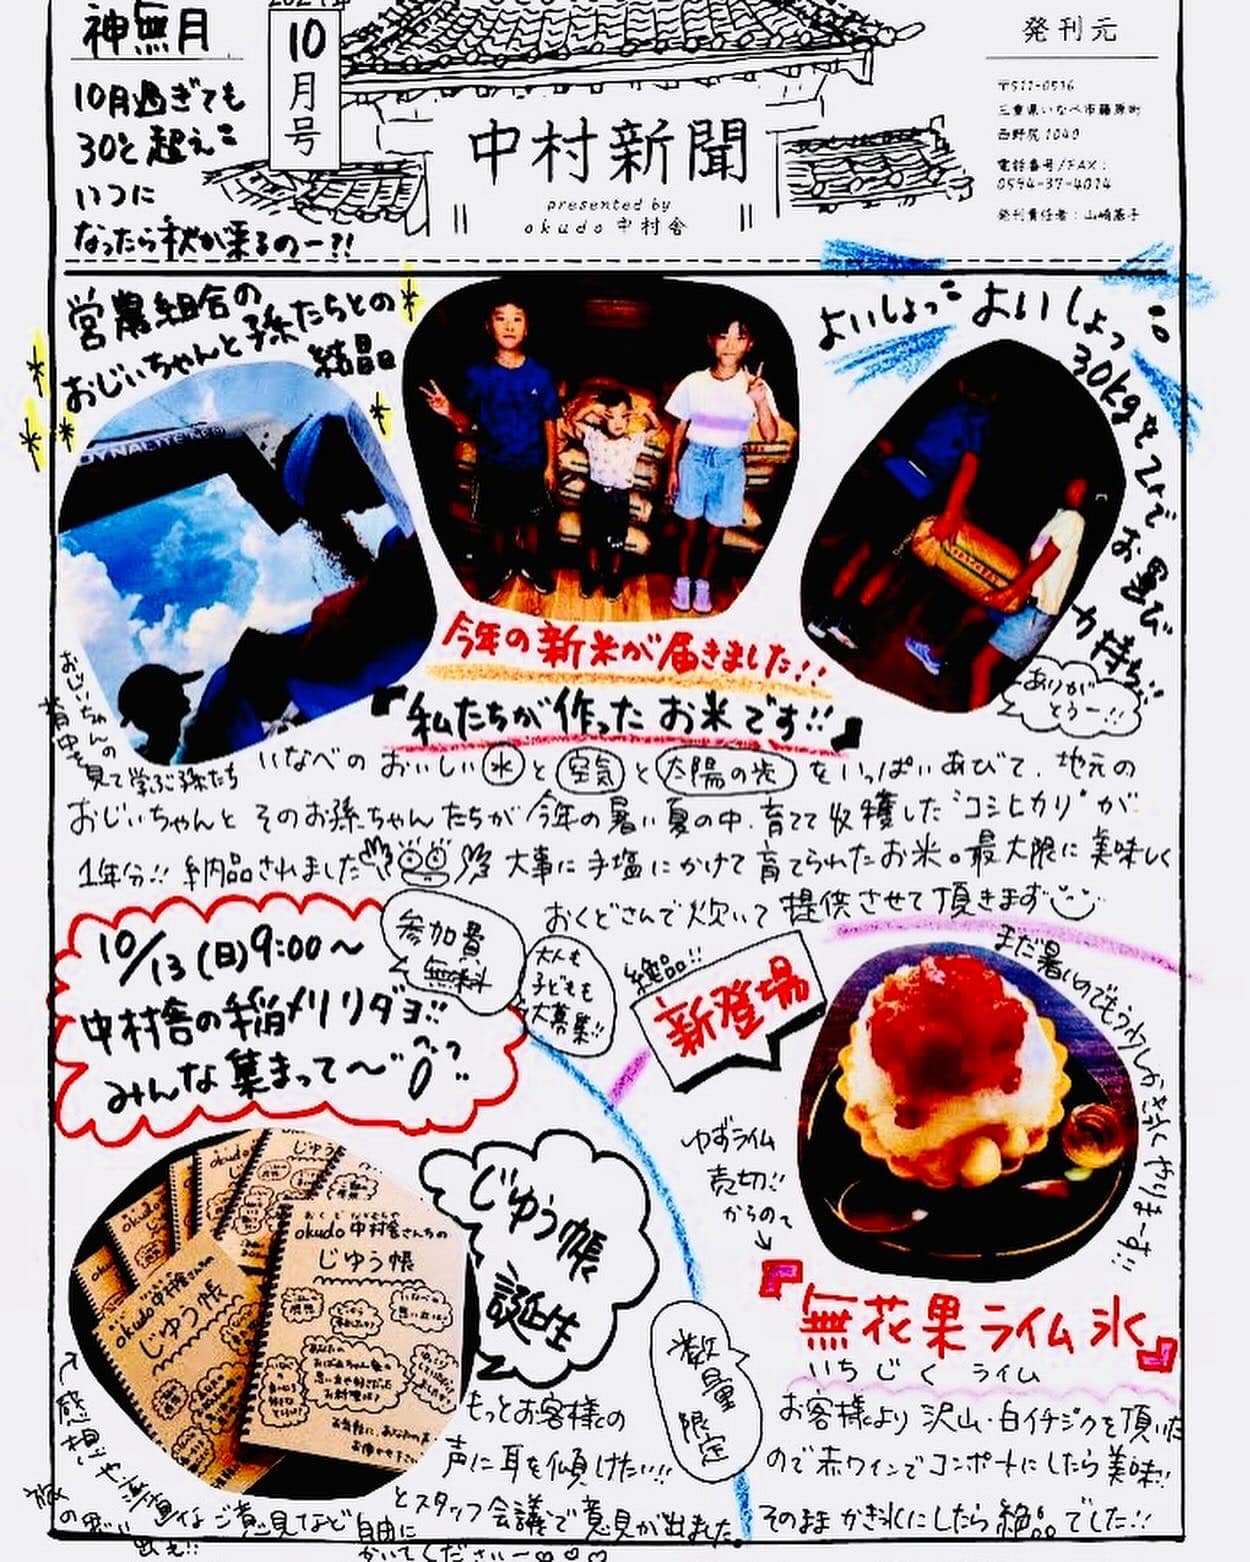 神無月
10月過ぎても
30℃超え
いつに
なったら秋が来るのー?!
10月号
中村新聞
presented by
okudo 中村舎
発刊元
〒511-0516
三重県いなべ市藤原町
西野尻1040
電話番号/FAX:
0594-37-4014
発刊責任者:山崎基子
営農組合の
おじいちゃんと孫たちとの
結晶
DYNALITE
よいしょっ よいしょっ
30kgを2人でお運び
力持ち!!
ありが
とうー!!
今年の新米が届きました!!
『私たちが作ったお米です!!』
おじいちゃんの
背中を
見て学ぶ孫たち
いなべの おいしい 水 と 空気 と 太陽の光 をいっぱいあびて、地元の
おじいちゃんと そのお孫ちゃんたちが 今年の暑い夏の中、育てて収穫した"コシヒカリ"が
1年分!! 納品されました 大事に手塩にかけて育てられたお米。最大限に美味しく
おくどさんで炊いて 提供させて頂きます
10/13(日)9:00〜
中村舎の稲メリリダヨ!!
みんな集まって〜
参加費
無料
大人も
子どもも
大募集!!
絶品!!
新登場
まだ暑いのでもう少しかき氷やりまーす!!
ゆずライム
売切!!
からの
『無花果ライム氷』
いちじく ライム
お客様より 沢山・白イチジクを頂いた
ので赤ワインでコンポートにしたら美味!!
そのままかき氷にしたら絶品でした!!
数量
限定
じゆう帳
誕生
okudo中村舎さんちの
じゆう帳
okudo中村舎さんちの
じゆう帳
もっとお客様の
声に耳を傾けたい!!
とスタッフ会議で意見が出ました
感想や素直なご意見など自由に
かいてくださいー♡♡♡
旅の思い
出も!!